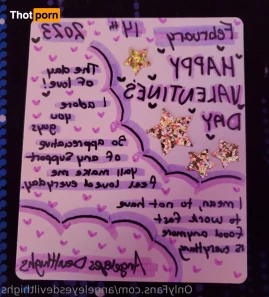 Thotporn
February 14th 2023
HAPPY
VALENTINES
DAY
The day
of "love"
I adore
you
guys
So appreciative
of any support
yall make me
feel loved everyday.
I mean, to not have
to work fast
food anymore
is everything
Angeleyes Devilthighs
OnlyFans.com/angeleyesdevilthighs